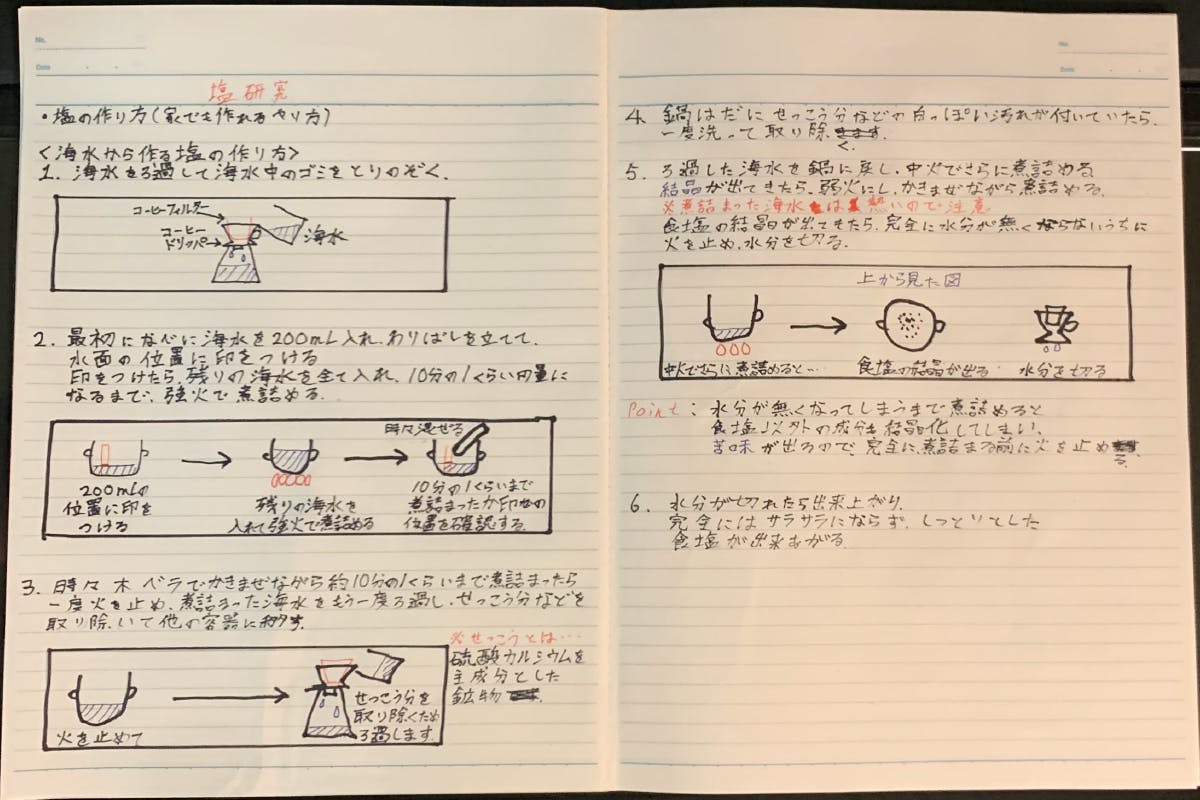 No.
Date
塩研究
・塩の作り方(家でも作れるやり方)
<海水から作る塩の作り方>
1. 海水をろ過して海水中のゴミをとりのぞく。
コーヒーフィルター
コーヒードリッパー
海水
2. 最初になべに海水を200mL入れ、わりばしを立てて、
水面の位置に印をつける
印をつけたら、残りの海水を全て入れ、10分の1くらい
になるまで、強火で煮詰める。
200mLの
位置に印を
つける
残りの海水を
入れて強火で煮詰める
時々混ぜる
10分の1くらいまで
煮詰まったか印の
位置を確認する。
3. 時々木ベラでかきまぜながら約10分の1くらいまで煮詰まったら
一度火を止め、煮詰まった海水をもう一度ろ過し、せっこう分などを
取り除いて他の容器に移す。
火を止めて
せっこう分を
取り除くため
ろ過します。
※せっこうとは…
硫酸カルシウムを
主成分とした
鉱物
No.
Date
4. 鍋はだにせっこう分などの白っぽい汚れが付いていたら、
一度洗って取り除く。
5. ろ過した海水を鍋に戻し、中火でさらに煮詰める。
結晶が出てきたら、弱火にし、かきまぜながら煮詰める。
※煮詰まった海水は熱いので注意
食塩の結晶が出てきたら、完全に水分が無くならないうちに
火を止め、水分を切る。
上から見た図
中火でさらに煮詰めると…
食塩の結晶が出る
水分を切る
Point : 水分が無くなってしまうまで煮詰めると
食塩以外の成分も結晶化してしまい、
苦味が出るので、完全に煮詰まる前に火を止める。
6. 水分が切れたら出来上がり。
完全にはサラサラにならず、しっとりとした
食塩が出来あがる。